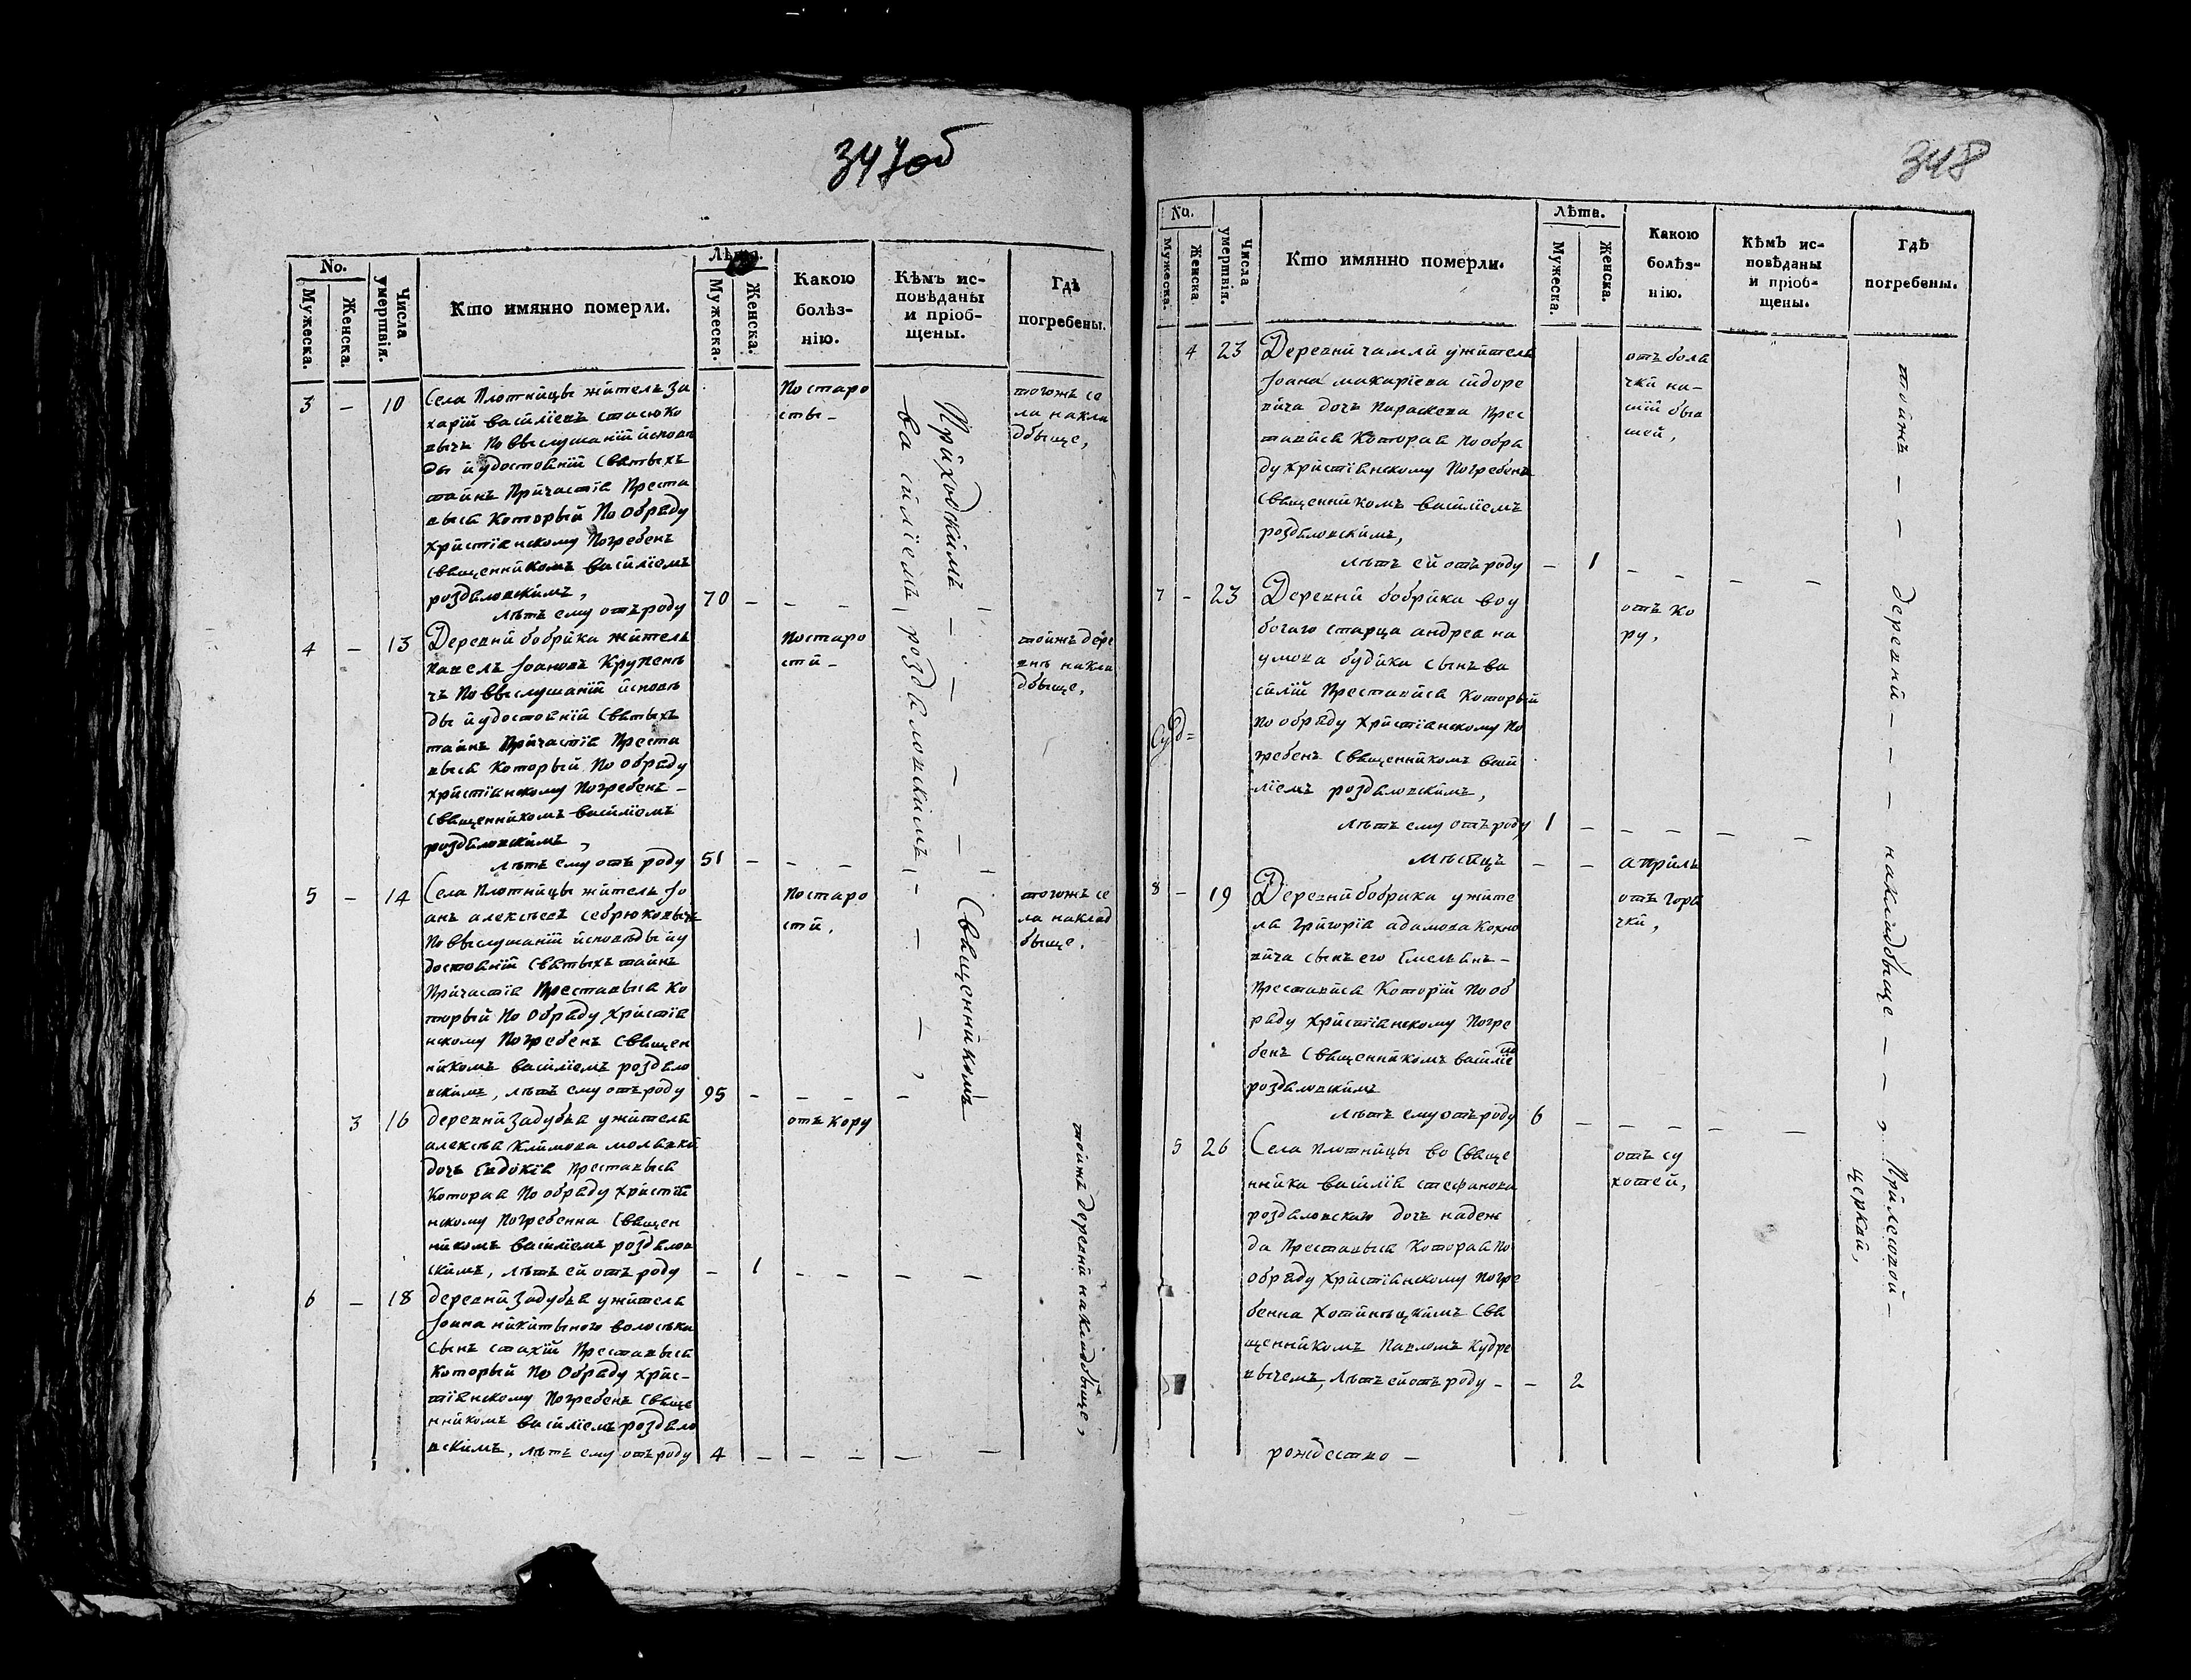 347об
No.
Мужеска.
Женска.
Числа умертвія.
Кто имянно померли.
Лѣта.
Мужеска.
Женска.
Какою болѣз-
нію.
Кѣмъ ис-
повѣданы
и пріоб-
щены.
Гдѣ
погребены.
3 — 10 Села Плотницы житель за
харій василіевъ стасюко
вычъ По выслушаніи исповѣ
ды и удостоѣніи Святыхъ
тайнъ Причастія Преста
выся Который По обряду
христіянскому Погребенъ
Священникомъ василіемъ
роздяловскимъ,
лѣтъ ему отъ роду 70 — — —
По старо
сты —
тогожъ се
ла на кла
дбыще,
4 — 13 Деревни бобрика житель
Павелъ Іоановъ Крупенъ
чъ По выслушаніи исповѣ
ды и удостоѣніи Святыхъ
тайнъ Причастія Преста
выся Который По обряду
христіянскому Погребенъ —
Священникомъ василіомъ
роздяловскимъ,
лѣтъ ему отъ роду 51 — — —
По старо
сти —
тоижъ дере
внѣ на кла
дбыще,
5 — 14 Села Плотницы житель Іо
анъ алексѣевъ себрюковычъ
По выслушаніи исповѣды и у
достоѣніи Святыхъ тайнъ
Причастія Преставыся Ко
торый По обряду христія
нскому Погребенъ Священ
никомъ василіемъ роздяло
вскимъ, лѣтъ ему отъ роду 95 — — — — —
По старо
сти,
тогожъ се
ла на клад
быще,
3 16 деревни задубья у жителя
алексѣя климова молявки
дочъ Евдокія Преставыся
Которая По обряду христія
нскому Погребенна Священ
никомъ василіемъ роздялов
скимъ, лѣтъ ей отъ роду — 1 — — — —
отъ кору
6 — 18 деревни задубья у жителя
Іоана никитыного волосѣка
Сынъ стахій Преставыся
Который По Обряду хрис-
тіянскому Погребенъ Свяще
нникомъ василіемъ роздяло
вскимъ, лѣтъ ему отъ роду 4 — — — — —
Приходскимъ — — — — Священникомъ
василіемъ роздяловскимъ — — — ,
тоижъ деревни на кладбыще,
348
No.
Мужеска.
Женска
Числа умертвія.
Кто имянно померли.
Лѣта.
Мужеска.
Женска.
Какою
болѣз-
нію.
Кѣмъ ис-
повѣданы
и пріоб-
щены.
Гдѣ
погребены.
4 23 Деревни чамли у жителя
Іоана макаріева сидоре
вича дочъ Параскева Прес
тавися Которая По обря
ду христіянскому Погребенъ
Священникомъ василіемъ
роздяловскимъ,
лѣтъ ей отъ роду — 1 — — — —
отъ боля
чки на-
шій быв
шей,
7 — 23 Деревни бобрика во у
богаго старца андрея на
умова будика Сынъ ва
силій Преставися Который
По обряду христіянскому По
гребенъ Священникомъ васи
ліемъ роздяловскимъ,
лѣтъ ему отъ роду 1 — — — — —
отъ ко
ру,
Мѣсяцъ — — априль
8 — 19 Деревни бобрика у жите
ля григорія адамова Кохно
вича сынъ его Емельянъ —
Преставися Которій По об
ряду христіянскому Погре
бенъ Священникомъ василіемъ
роздяловскимъ
лѣтъ ему отъ роду 6 — — — — —
отъ горя
чки,
5 26 Села Плотницы во Свяще
нника василія стефанова
роздяловскаго дочъ надеж
да Преставыся Которая По
обряду христіянскому Погре
бенна Хотинѣцкимъ Свя
щенникомъ Павломъ Кудре
вычемъ, лѣтъ ей отъ роду — — 2
отъ су
хотей,
рождество —
тоижъ — — деревни — — — на кладбыще — — , При лесовой —
церкви,